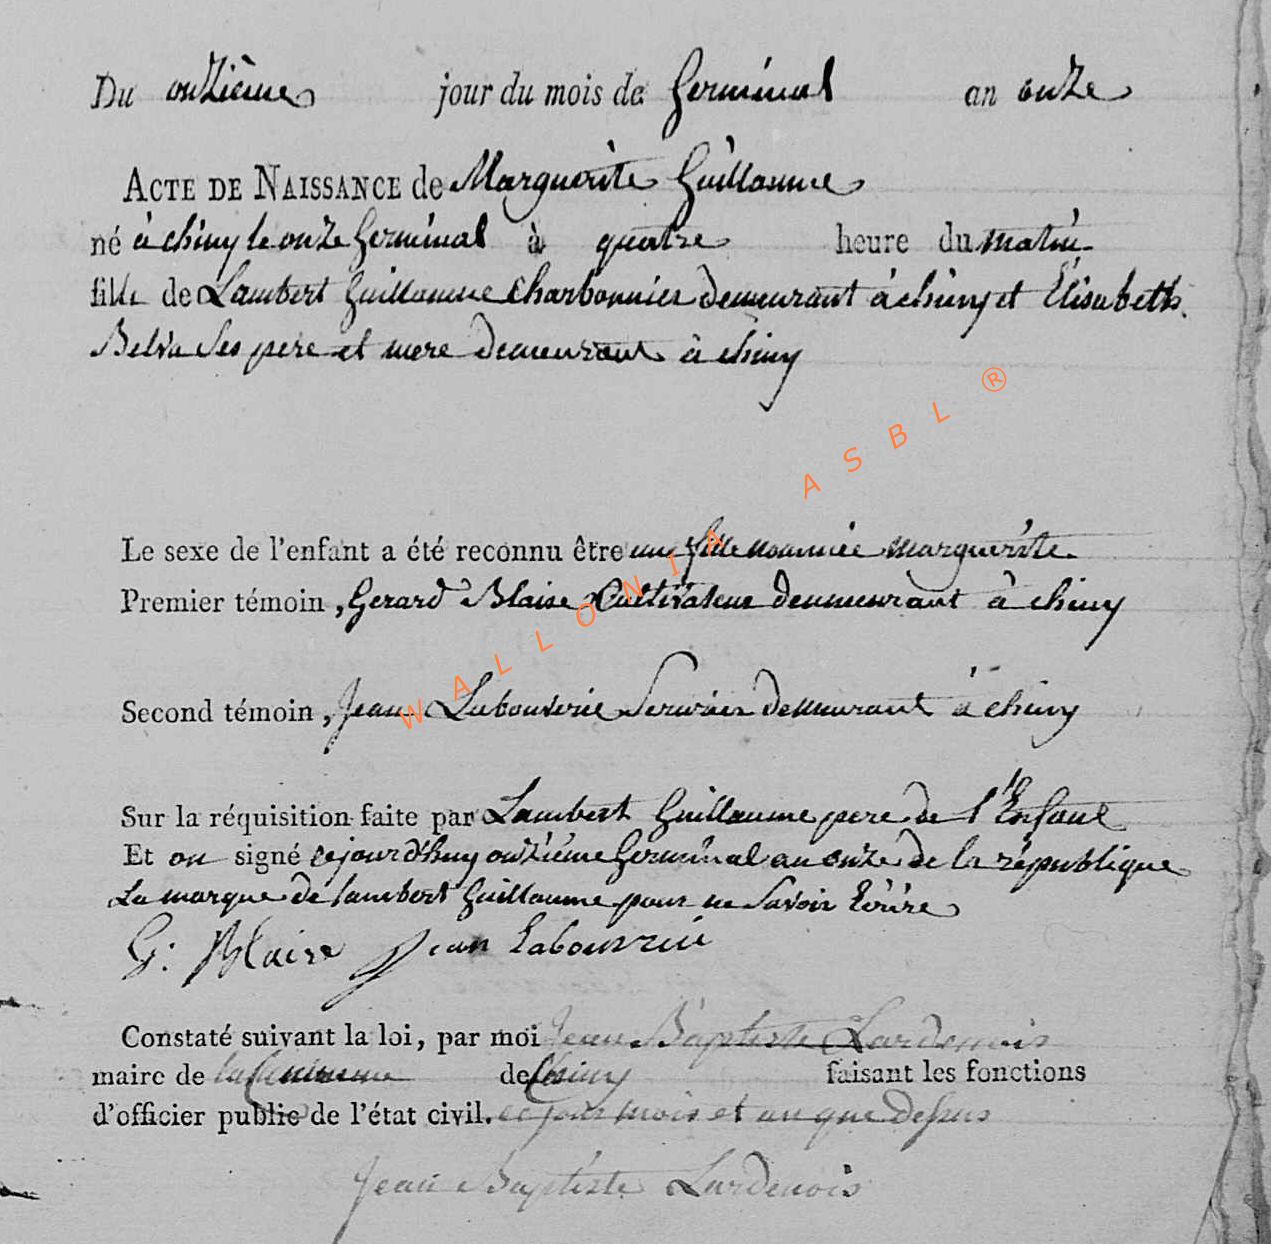 Du onzième jour du mois de Germinal an onze
ACTE DE NAISSANCE de Marguerite Guillaume
né à chiny le onze Germinal à quatre heure du matin
fille de Lambert Guillaume Charbonnier demeurant à chiny et Elisabeth
Belva ses pere et mere demeurant à chiny
Le sexe de l'enfant a été reconnu être une fille nommée marguerite
Premier témoin, Gerard Blaise Cultivateur demeurant à chiny
Second témoin, Jean Labouverie demeurant à chiny
Sur la réquisition faite par Lambert Guillaume pere de l'Enfant
Et on signé cejourd'huy onzième Germinal an onze de la république
La marque de lambert Guillaume pour ne savoir Ecrire
G: Blaise Jean Labouverie
Constaté suivant la loi, par moi Jean Baptiste Lardenois
maire de la Commune de Chiny faisant les fonctions
d'officier public de l'état civil. ce jour mois et an que dessus
Jean Baptiste Lardenois
WALLONIA ASBL ®